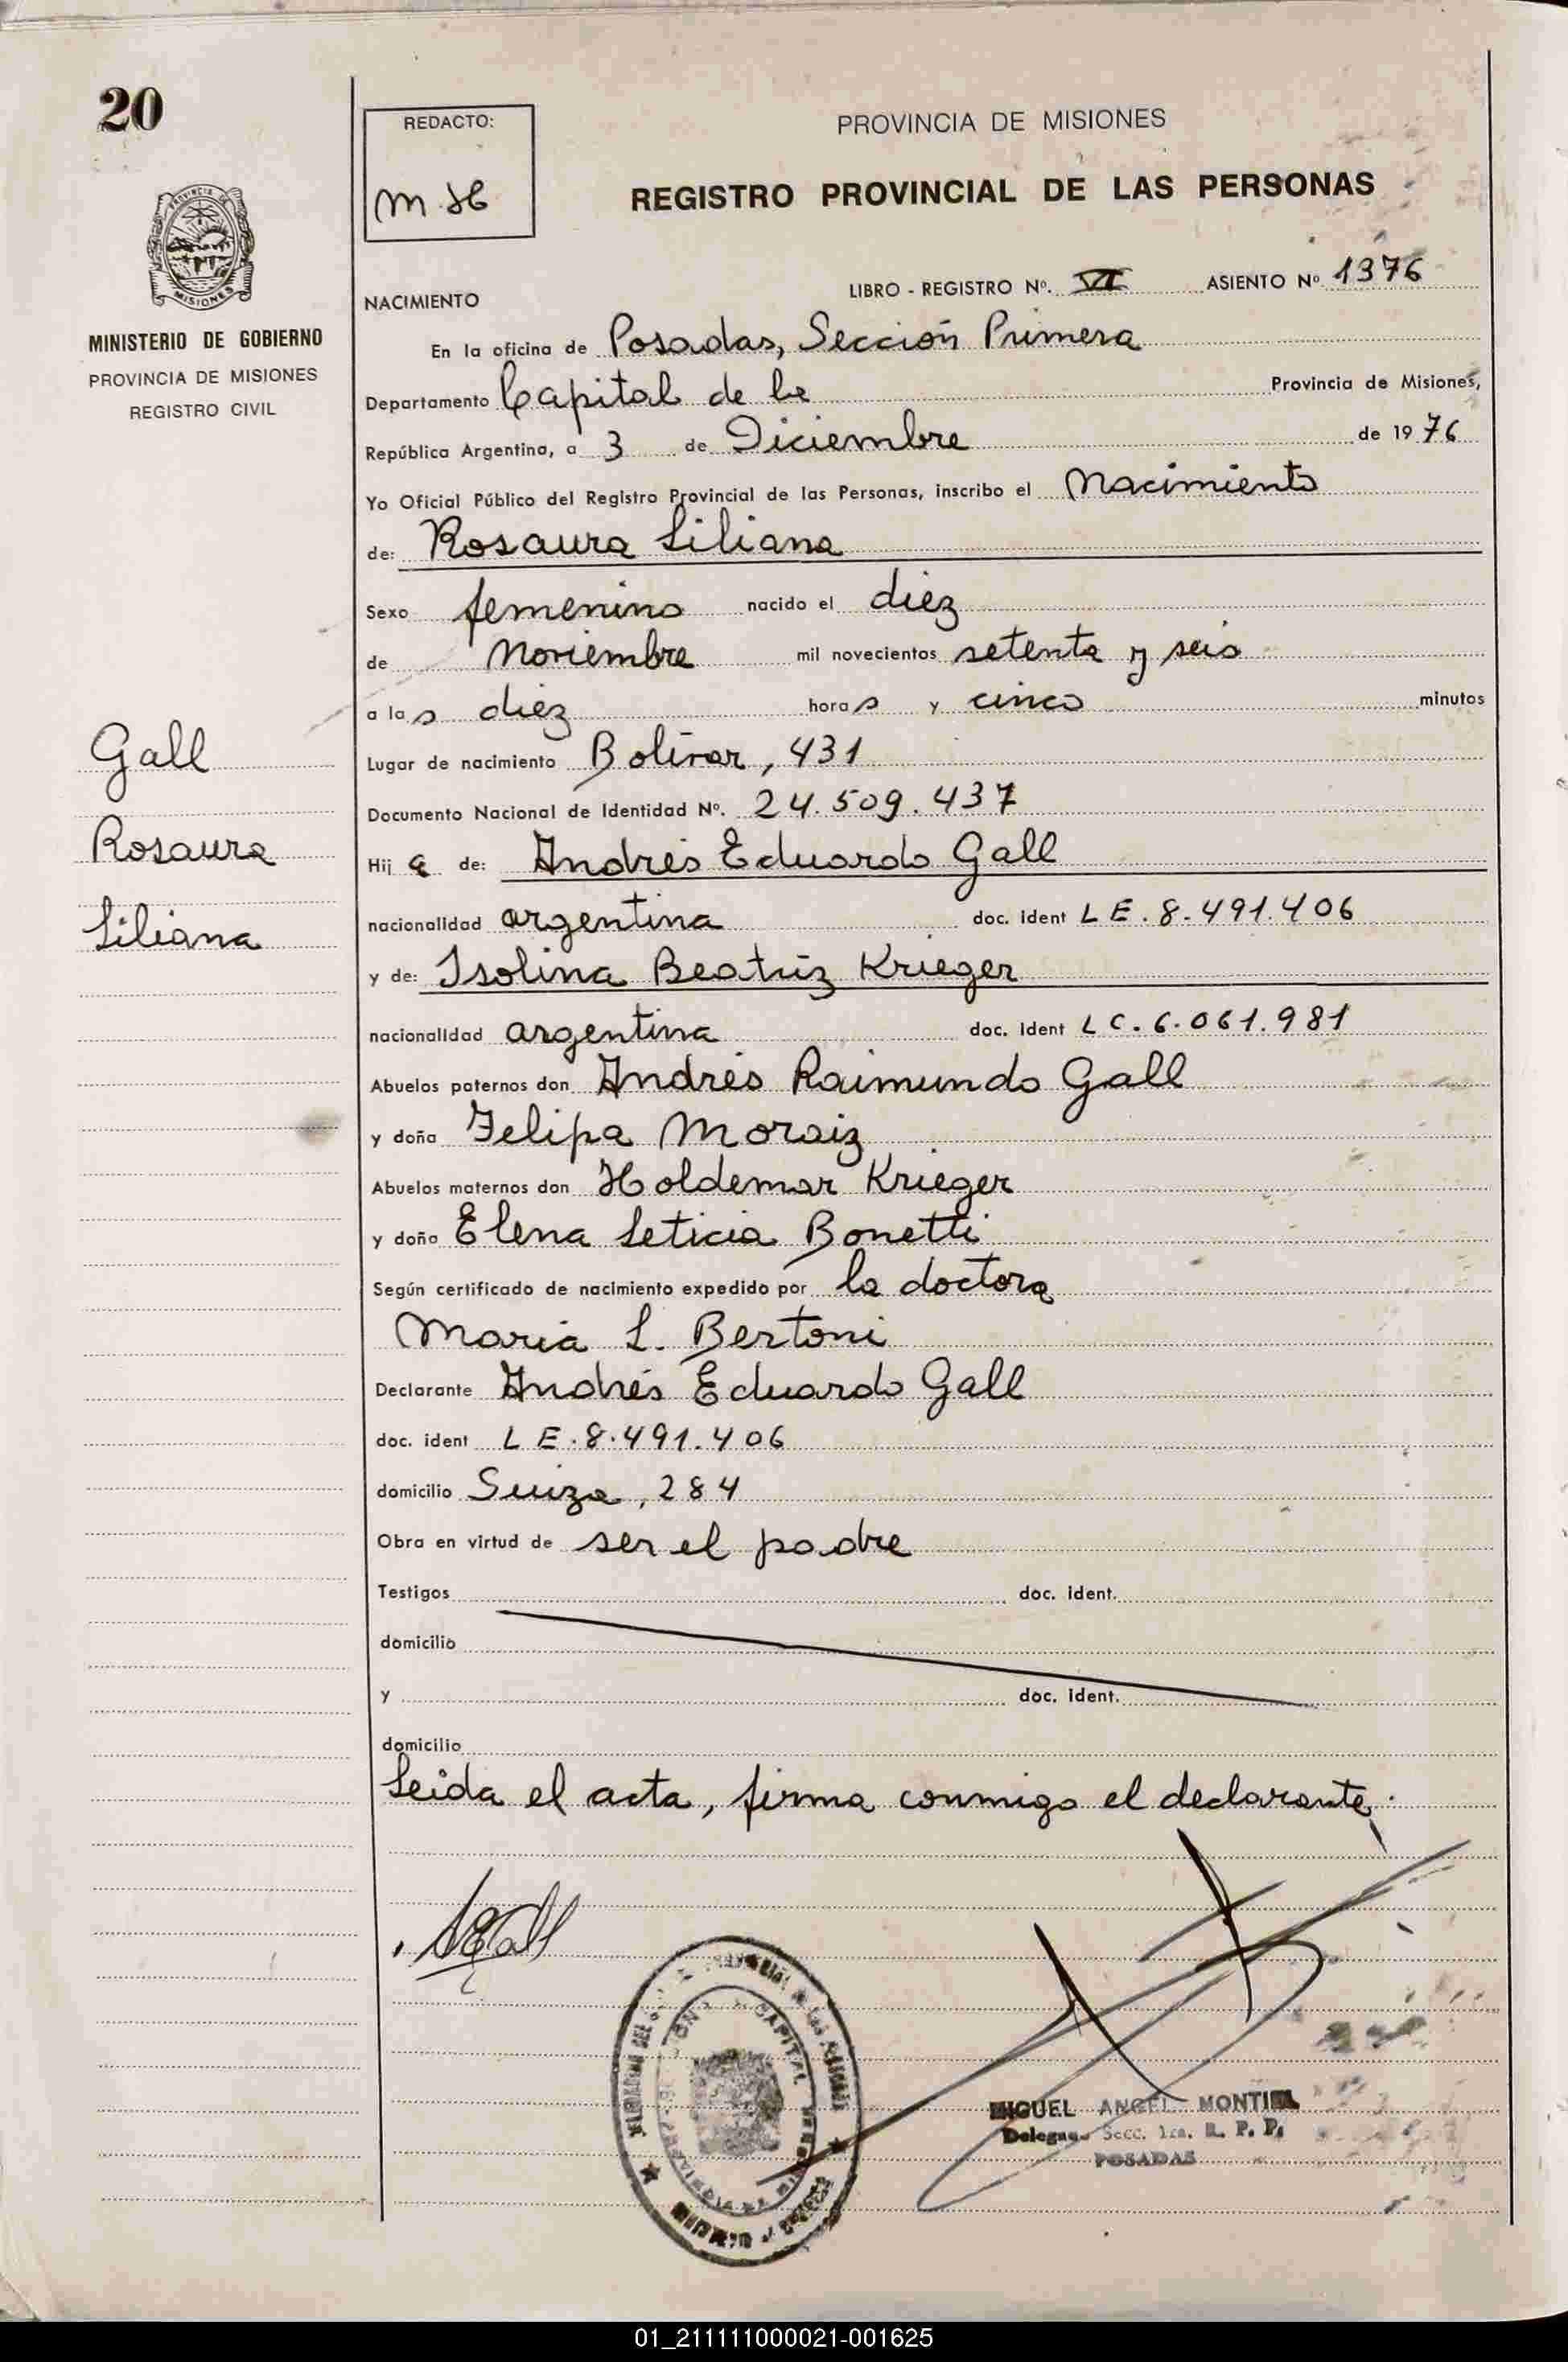 20
REDACTO:
M.H.
PROVINCIA DE MISIONES
REGISTRO PROVINCIAL DE LAS PERSONAS
PROVINCIA
MISIONES
MINISTERIO DE GOBIERNO
PROVINCIA DE MISIONES
REGISTRO CIVIL
NACIMIENTO
LIBRO - REGISTRO Nº. VI ASIENTO Nº 1376
En la oficina de Posadas, Sección Primera
Departamento Capital de la Provincia de Misiones,
República Argentina, a 3 de Diciembre de 1976
Yo Oficial Público del Registro Provincial de las Personas, inscribo el Nacimiento
de: Rosaura Liliana
Sexo femenino nacido el diez
de Noviembre mil novecientos setenta y seis
a las diez horas y cinco minutos
Lugar de nacimiento Bolívar, 431
Documento Nacional de Identidad Nº. 24.509.437
Hija de: Andrés Eduardo Gall
nacionalidad argentina doc. ident LE. 8.491.406
y de: Isolina Beatriz Krieger
nacionalidad argentina doc. ident LC. 6.061.981
Abuelos paternos don Andrés Raimundo Gall
y doña Felipa Moraiz
Abuelos maternos don Holdemar Krieger
y doña Elena Leticia Bonetti
Según certificado de nacimiento expedido por la doctora
Maria L. Bertoni
Declarante Andrés Eduardo Gall
doc. ident LE. 8.491.406
domicilio Suiza, 284
Obra en virtud de ser el padre
Testigos doc. ident.
domicilio
y doc. ident.
domicilio
Leida el acta, firma conmigo el declarante.
Gall
Rosaura
Liliana
AEGall
CAPITAL
MIGUEL ANGEL MONTIEL
Delegado Secc. 1ra. R. P. P.
POSADAS
01_211111000021-001625